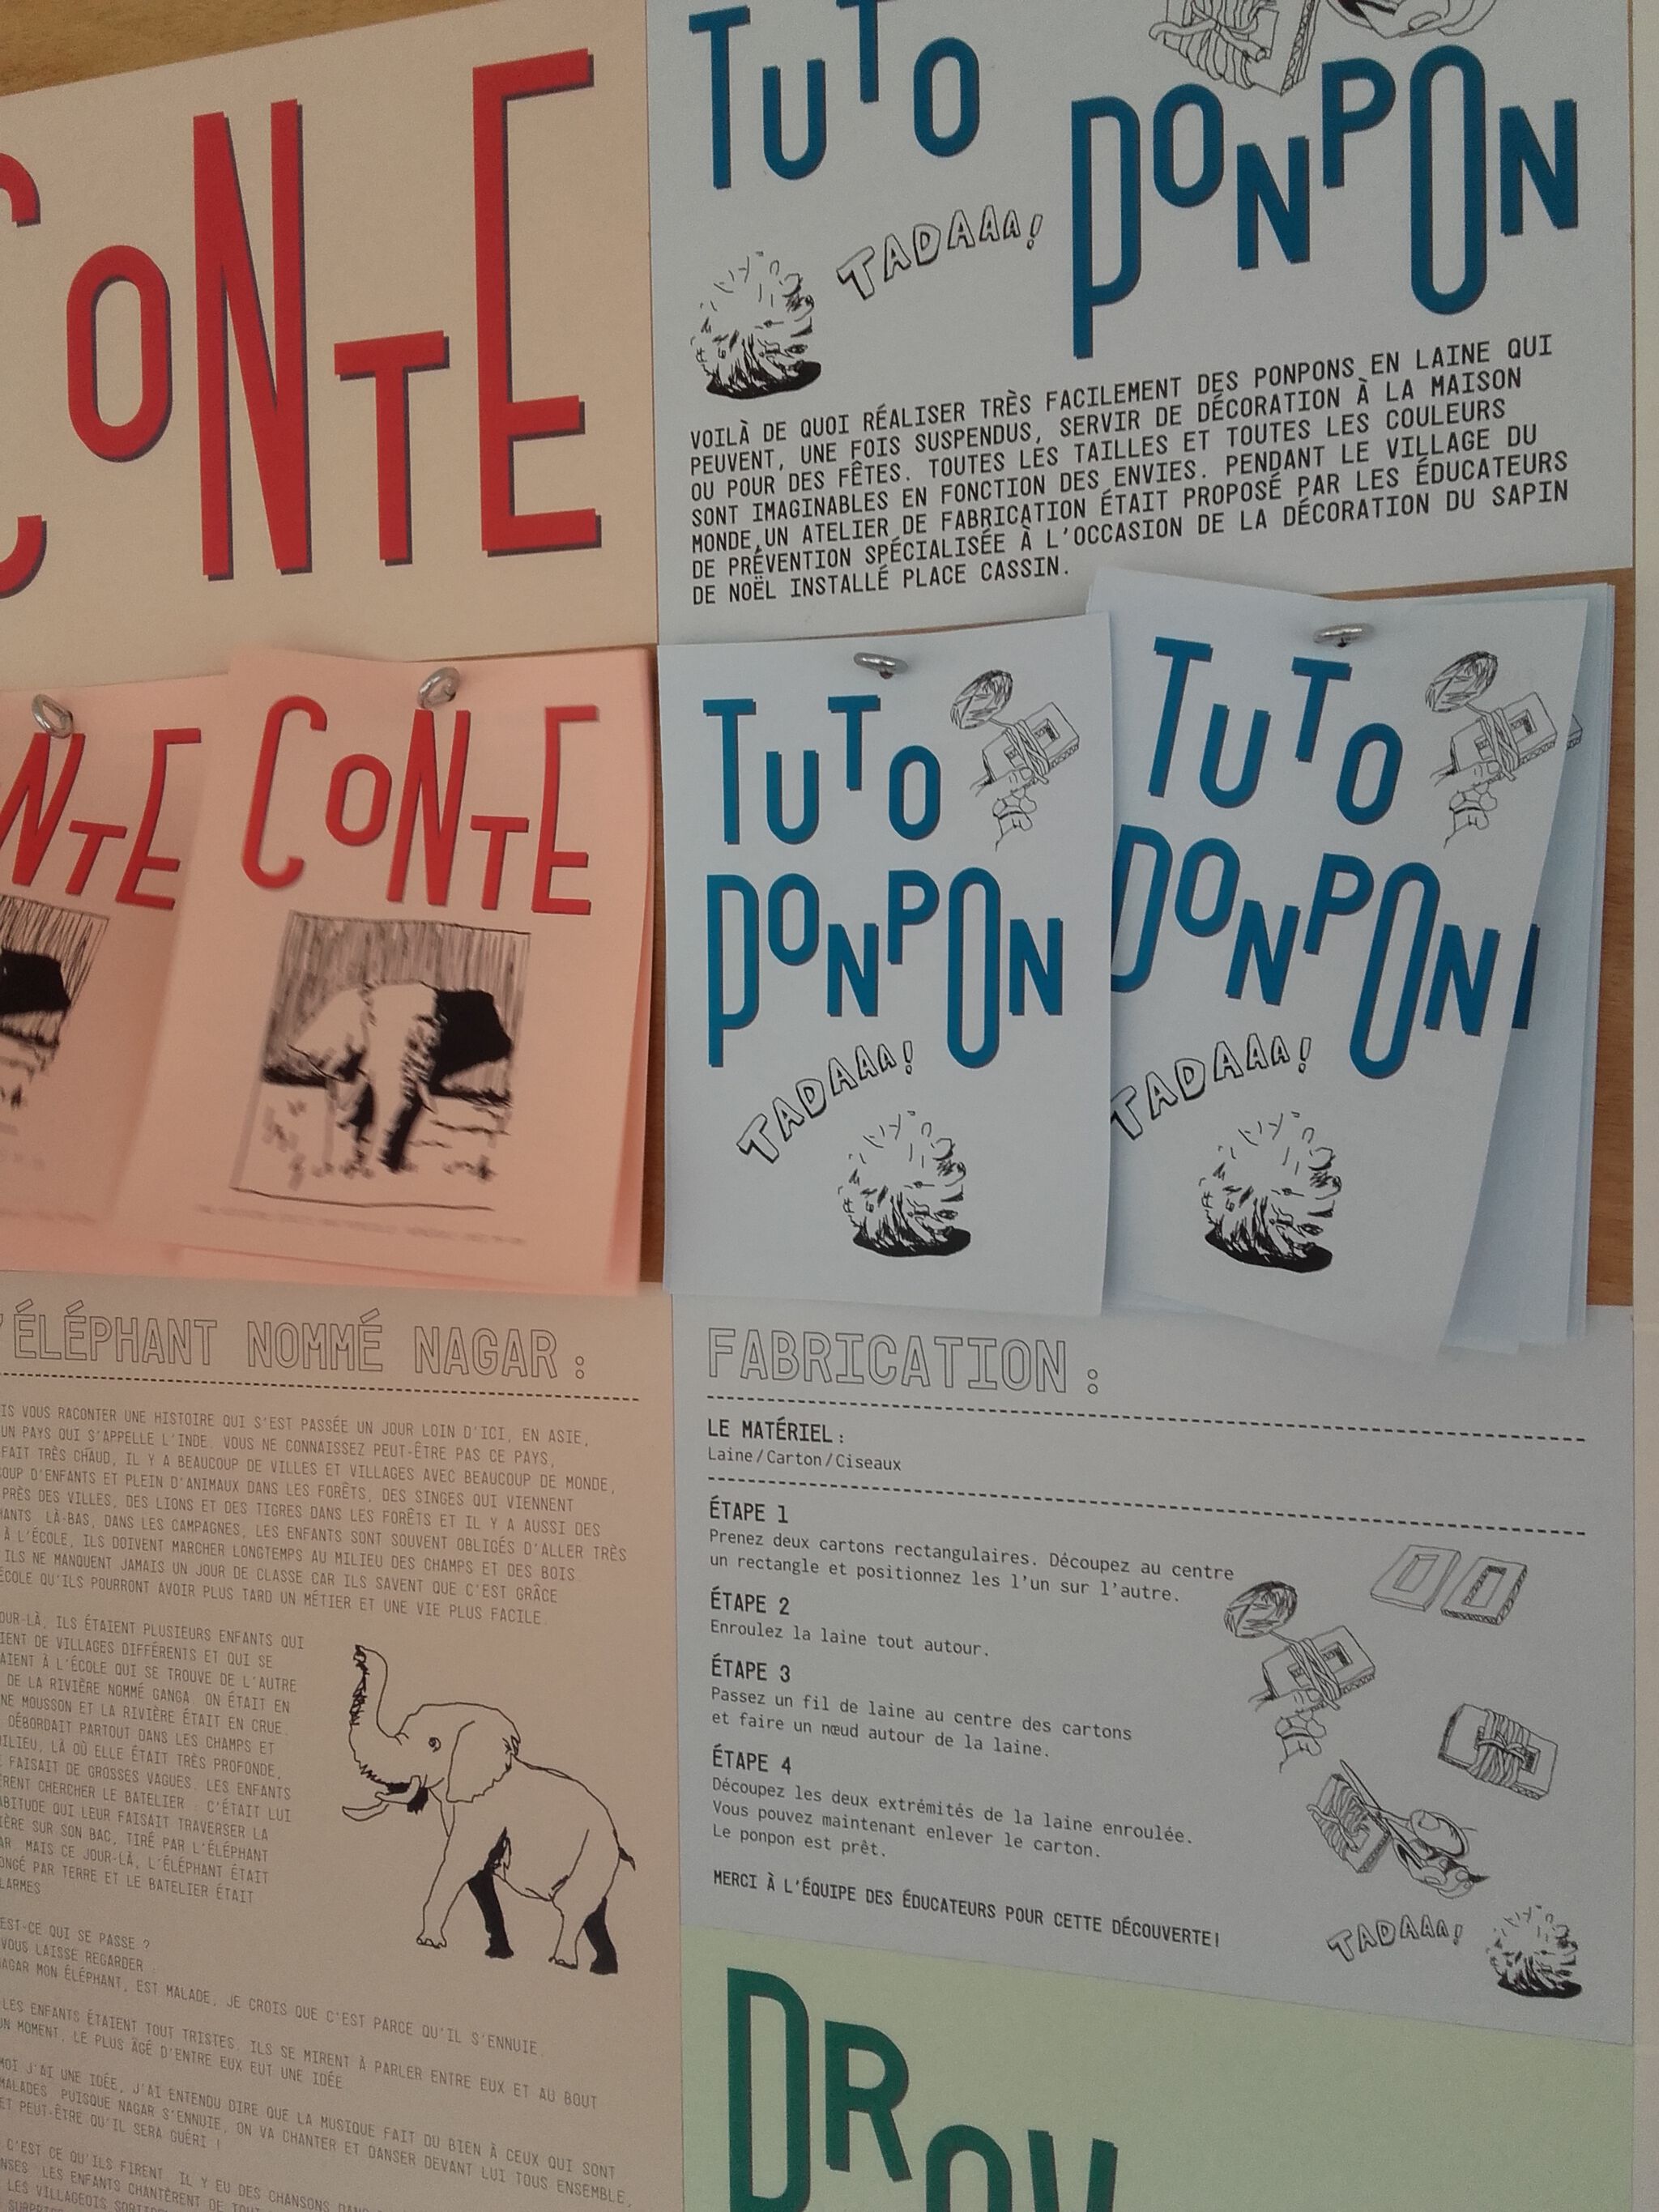 CONTE
TUTO
PONPON
TADAAA!
VOILÀ DE QUOI RÉALISER TRÈS FACILEMENT DES PONPONS EN LAINE QUI
PEUVENT, UNE FOIS SUSPENDUS, SERVIR DE DÉCORATION À LA MAISON
OU POUR DES FÊTES. TOUTES LES TAILLES ET TOUTES LES COULEURS
SONT IMAGINABLES EN FONCTION DES ENVIES. PENDANT LE VILLAGE DU
MONDE,UN ATELIER DE FABRICATION ÉTAIT PROPOSÉ PAR LES ÉDUCATEURS
DE PRÉVENTION SPÉCIALISÉE À L'OCCASION DE LA DÉCORATION DU SAPIN
DE NOËL INSTALLÉ PLACE CASSIN.
NTE
CONTE
TUTO
PONPON
TADAAA!
TUTO
PONPON
TADAAA!
'ÉLÉPHANT NOMMÉ NAGAR :
IS VOUS RACONTER UNE HISTOIRE QUI S'EST PASSÉE UN JOUR LOIN D'ICI, EN ASIE,
UN PAYS QUI S'APPELLE L'INDE. VOUS NE CONNAISSEZ PEUT-ÊTRE PAS CE PAYS,
FAIT TRÈS CHAUD, IL Y A BEAUCOUP DE VILLES ET VILLAGES AVEC BEAUCOUP DE MONDE,
COUP D'ENFANTS ET PLEIN D'ANIMAUX DANS LES FORÊTS, DES SINGES QUI VIENNENT
PRÈS DES VILLES, DES LIONS ET DES TIGRES DANS LES FORÊTS ET IL Y A AUSSI DES
HANTS. LÀ-BAS, DANS LES CAMPAGNES, LES ENFANTS SONT SOUVENT OBLIGÉS D'ALLER TRÈS
À L'ËCOLE, ILS DOIVENT MARCHER LONGTEMPS AU MILIEU DES CHAMPS ET DES BOIS.
ILS NE MANQUENT JAMAIS UN JOUR DE CLASSE CAR ILS SAVENT QUE C'EST GRÂCE
ÉCOLE QU'ILS POURRONT AVOIR PLUS TARD UN MÉTIER ET UNE VIE PLUS FACILE.
OUR-LÀ, ILS ÉTAIENT PLUSIEURS ENFANTS QUI
IENT DE VILLAGES DIFFÉRENTS ET QUI SE
AIENT À L'ÉCOLE QUI SE TROUVE DE L'AUTRE
DE LA RIVIÈRE NOMMÉ GANGA. ON ÉTAIT EN
NE MOUSSON ET LA RIVIÈRE ÉTAIT EN CRUE.
DÉBORDAIT PARTOUT DANS LES CHAMPS ET
ILIEU, LÀ OÙ ELLE ÉTAIT TRÈS PROFONDE,
FAISAIT DE GROSSES VAGUES. LES ENFANTS
ÈRENT CHERCHER LE BATELIER : C'ÉTAIT LUI
ABITUDE QUI LEUR FAISAIT TRAVERSER LA
IÈRE SUR SON BAC, TIRÉ PAR L'ÉLÉPHANT
AR. MAIS CE JOUR-LÀ, L'ÉLÉPHANT ÉTAIT
ONGÉ PAR TERRE ET LE BATELIER ÉTAIT
LARMES.
EST-CE QUI SE PASSE ?
VOUS LAISSE REGARDER
NAGAR MON ÉLÉPHANT, EST MALADE, JE CROIS QUE C'EST PARCE QU'IL S'ENNUIE.
LES ENFANTS ÉTAIENT TOUT TRISTES. ILS SE MIRENT À PARLER ENTRE EUX ET AU BOUT
UN MOMENT, LE PLUS ÂGÉ D'ENTRE EUX EUT UNE IDÉE
MOI J'AI UNE IDÉE, J'AI ENTENDU DIRE QUE LA MUSIQUE FAIT DU BIEN À CEUX QUI SONT
MALADES. PUISQUE NAGAR S'ENNUIE, ON VA CHANTER ET DANSER DEVANT LUI TOUS ENSEMBLE,
ET PEUT-ÊTRE QU'IL SERA GUÉRI !
C'EST CE QU'ILS FIRENT. IL Y EU DES CHANSONS
LES ENFANTS CHANTÈRENT DE
LES VILLAGEOIS
FABRICATION :
LE MATÉRIEL :
Laine/Carton/Ciseaux
ÉTAPE 1
Prenez deux cartons rectangulaires. Découpez au centre
un rectangle et positionnez les l'un sur l'autre.
ÉTAPE 2
Enroulez la laine tout autour.
ÉTAPE 3
Passez un fil de laine au centre des cartons
et faire un nœud autour de la laine.
ÉTAPE 4
Découpez les deux extrémités de la laine enroulée.
Vous pouvez maintenant enlever le carton.
Le ponpon est prêt.
MERCI À L'ÉQUIPE DES ÉDUCATEURS POUR CETTE DÉCOUVERTE!
TADAAA!